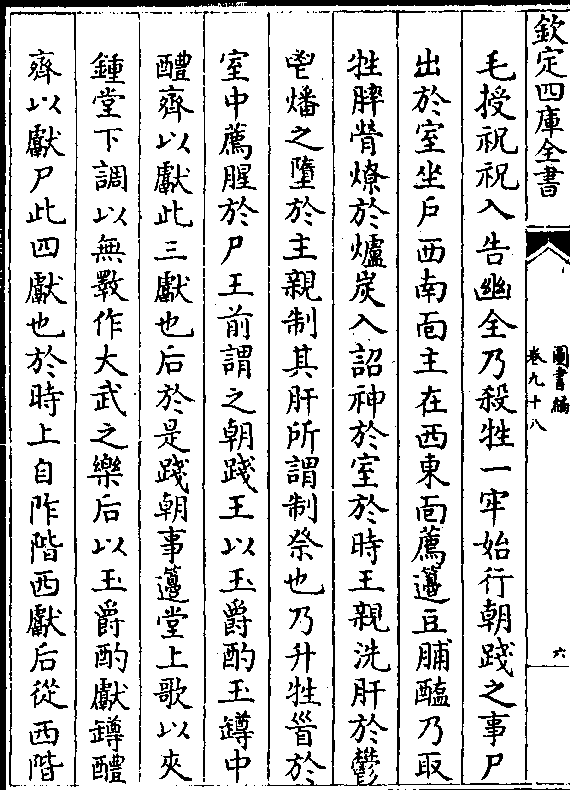 欽定四庫全書
圖書編
卷九十八
六
毛授祝祝入告幽全乃殺牲一牢始行朝踐之事尸
出於室坐戶西南靣主在西東靣薦籩豆脯醢乃取
牲膟膋燎於爐炭入詔神於室於時王親洗肝於鬱
鬯燔之墮於主親制其肝所謂制祭也乃升牲首於
室中薦腥於尸王前謂之朝踐王以玉爵酌玉罇中
醴齊以獻此三獻也后於是踐朝事籩堂上歌以夾
鍾堂下調以無斁作大武之樂后以玉爵酌獻罇醴
齊以獻尸此四獻也於時上自阼階西獻后從西階